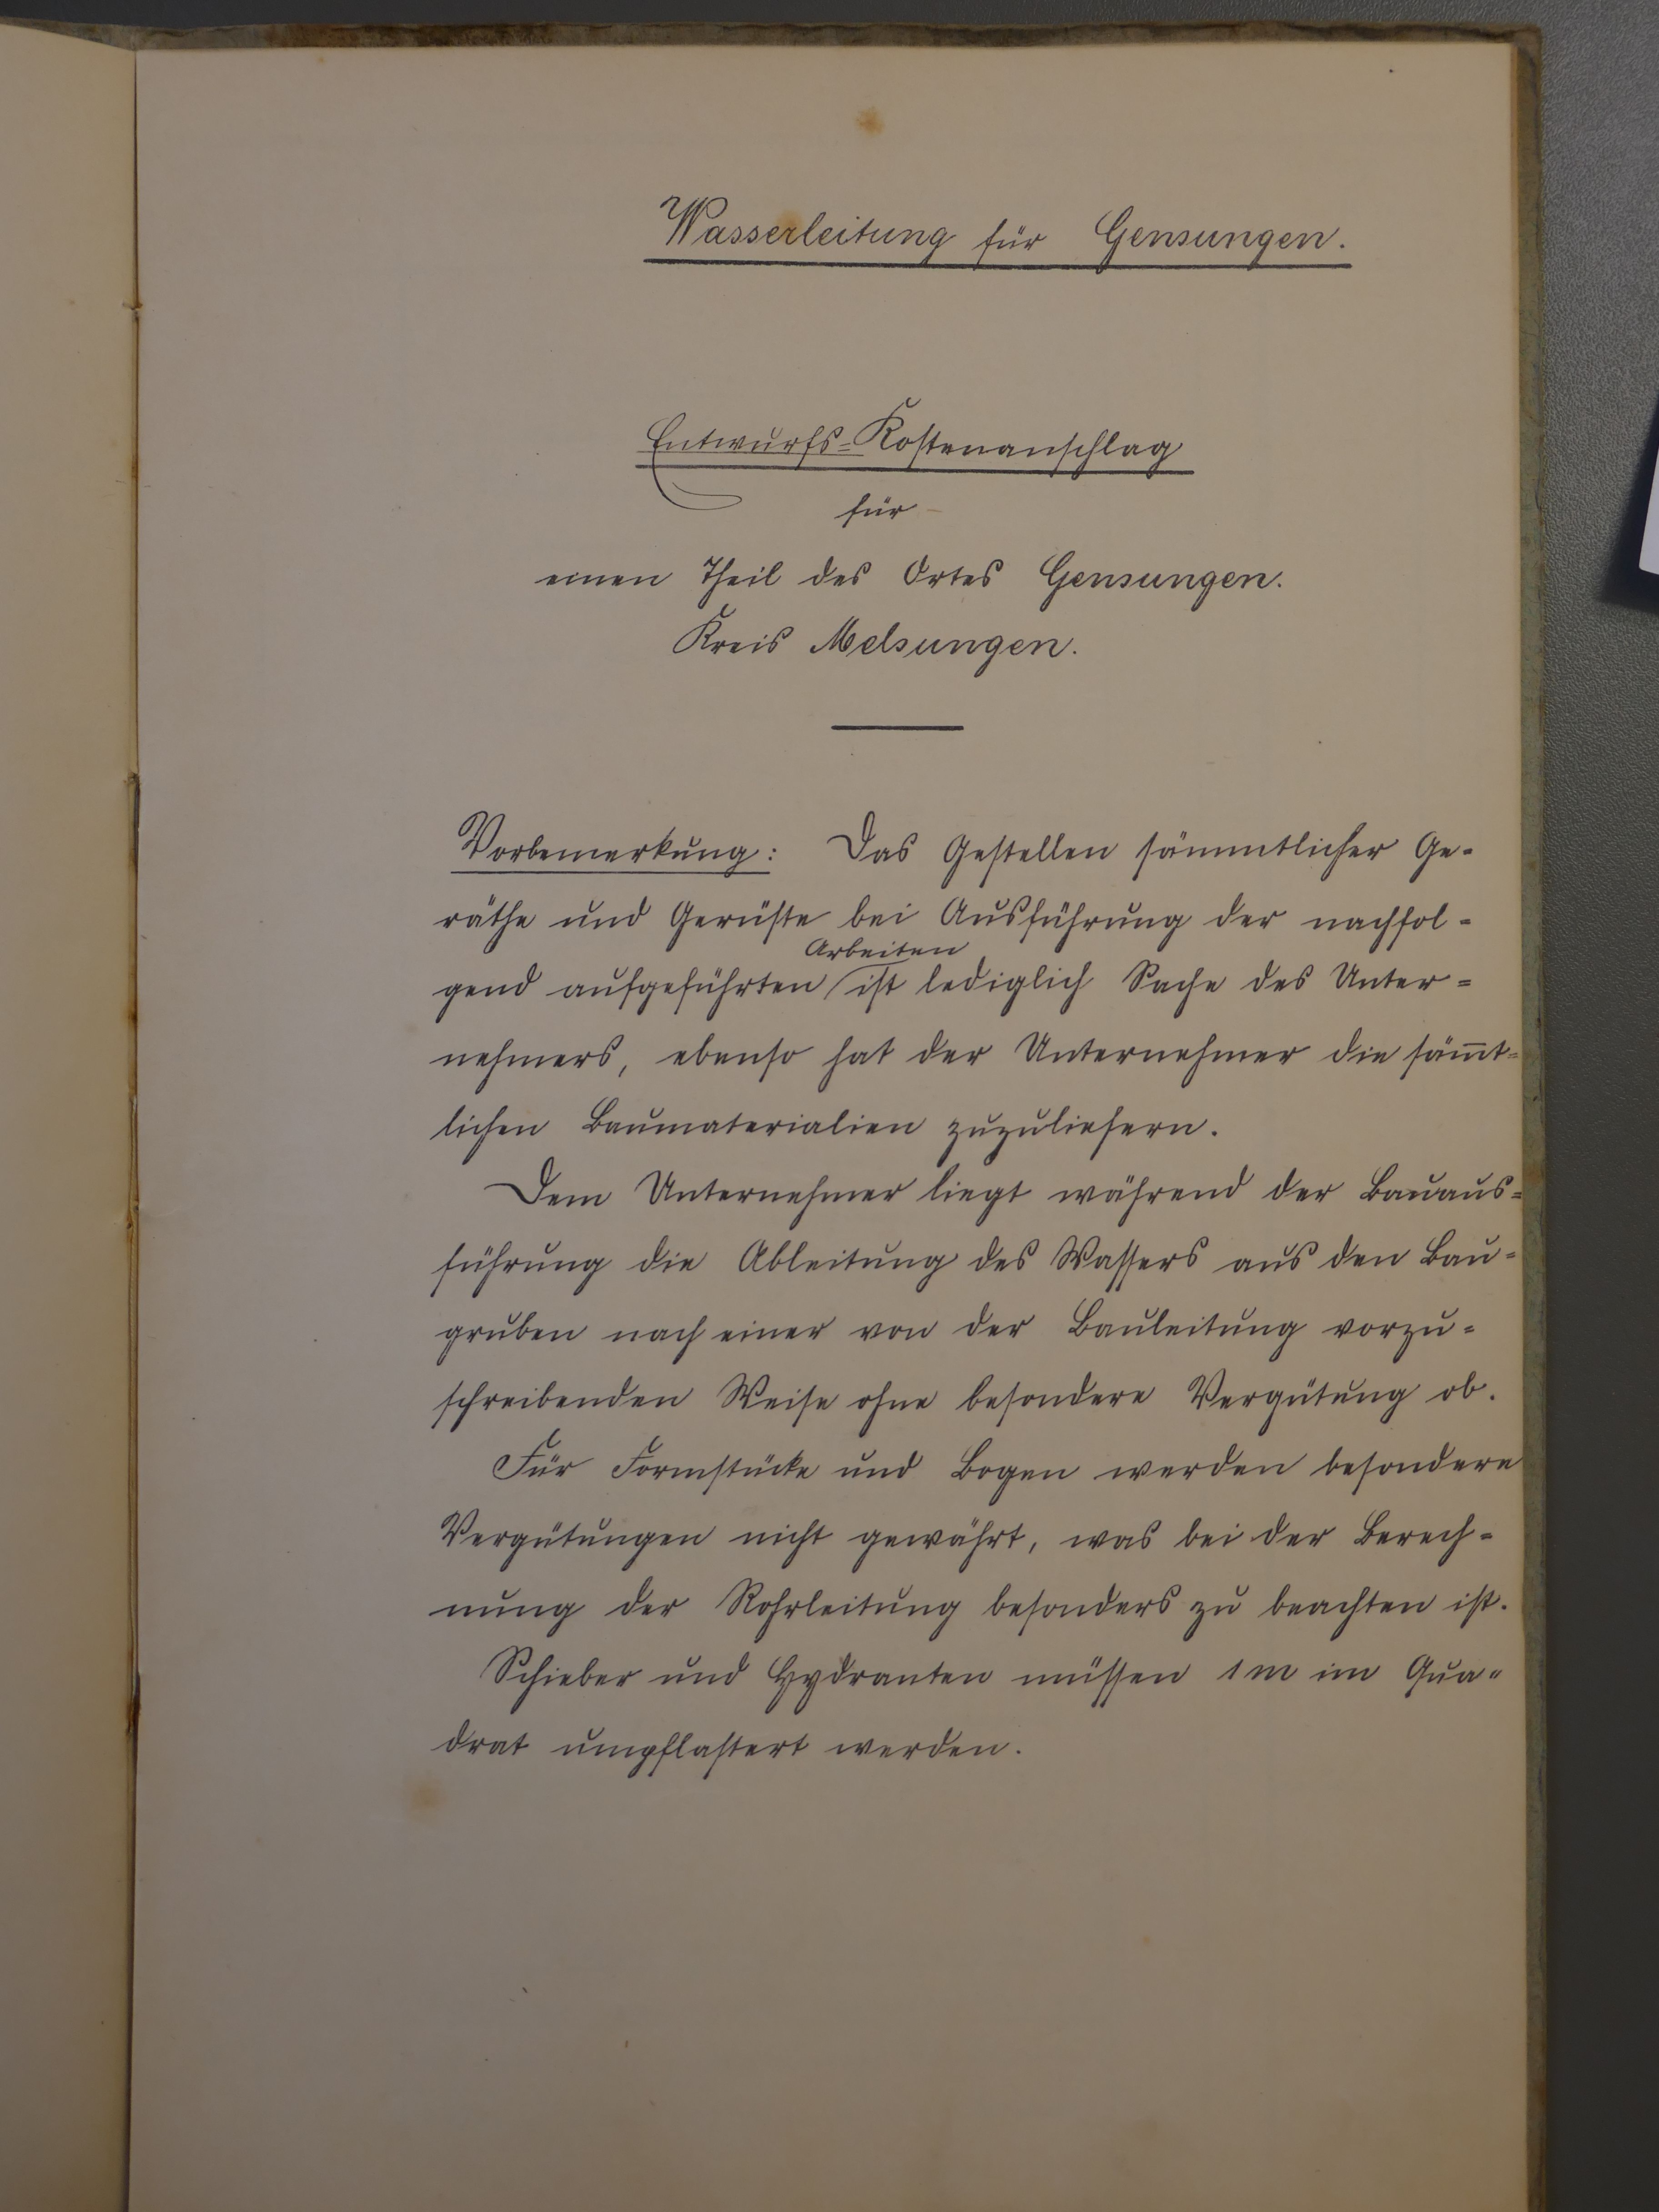 Wasserleitung für Gensungen.
Entwurfs-Kostenanschlag
für
einen Theil des Ortes Gensungen.
Kreis Melsungen.
Vorbemerkung: Das Gestellen sämmtlicher Ge-
räthe und Gerüste bei Ausführung der nachfol-
Arbeiten
gend aufgeführten ist lediglich Sache des Unter-
nehmers, ebenso hat der Unternehmer die säm̅t-
lichen Baumaterialien zuzuliefern.
Dem Unternehmer liegt während der Bauaus-
führung die Ableitung des Wassers aus den Bau-
gruben nach einer von der Bauleitung vorzu-
schreibenden Weise ohne besondere Vergütung ob.
Für Formstücke und Bogen werden besondere
Vergütungen nicht gewährt, was bei der Berech-
nung der Rohrleitung besonders zu beachten ist.
Schieber und Hydranten müssen 1 m im Qua-
drat umpflastert werden.